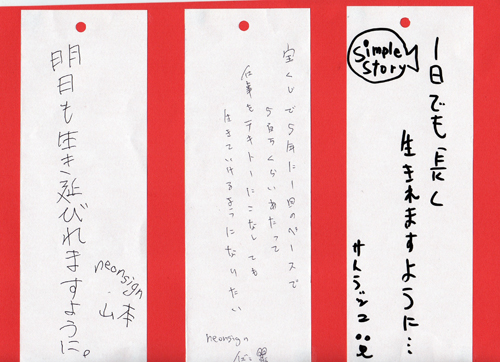 Simple
Story
1日でも長く
生きれますように…
宝くじで5年に1回のペースで
5百万くらいあたって
仕事をテキトーにこなしても
生きていけるようになりたい
neonsign
明日も生き延びれますように。
neonsign
山本